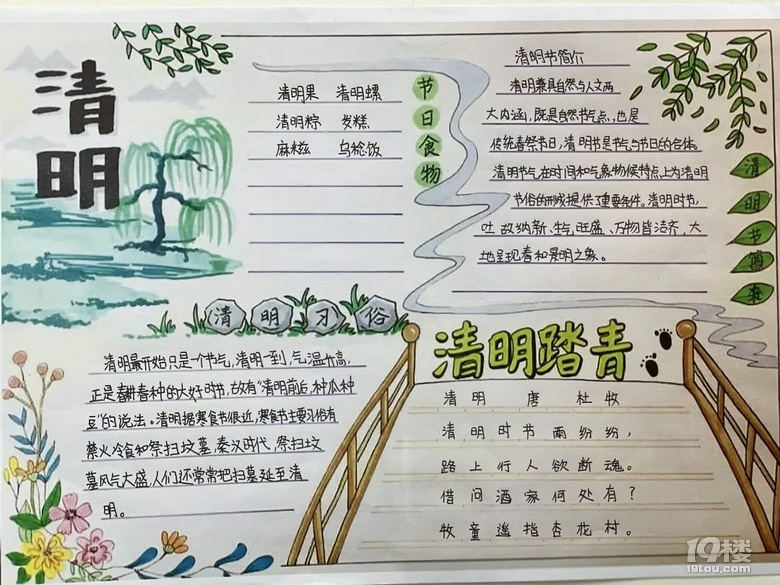 清明
清明果 清明螺
清明粽 发糕
麻糍 乌稔饭
节日食物
清明节简介
清明兼具自然与人文两
大内涵，既是自然节气点，也是
传统春祭节日，清明节是节气与节日的合体，
清明节气在时间和气象物候特点上为清明
节俗的形成提供了重要条件。清明时节，
吐故纳新、生气旺盛、万物皆洁齐，大
地呈现春和景明之象。
清明节简来
清明习俗
清明最开始只是个节气，清明一到，气温升高，
正是春耕春种的大好时节，故有"清明前后，种瓜种
豆"的说法。清明据寒食节很近，寒食节主要习俗有
禁火冷食和祭扫坟墓，秦汉时代，祭扫坟
墓风气大盛，人们还常常把扫墓延至清
明。
清明踏青
清明 唐 杜牧
清明时节雨纷纷，
路上行人欲断魂。
借问酒家何处有？
牧童遥指杏花村。
19楼
19lou.com